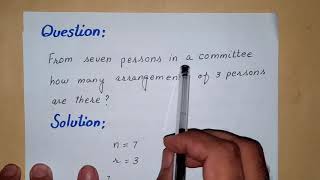 Question:
From seven persons in a committee
how many arrangements of 3 persons
are there?
Solution:
n = 7
r = 3